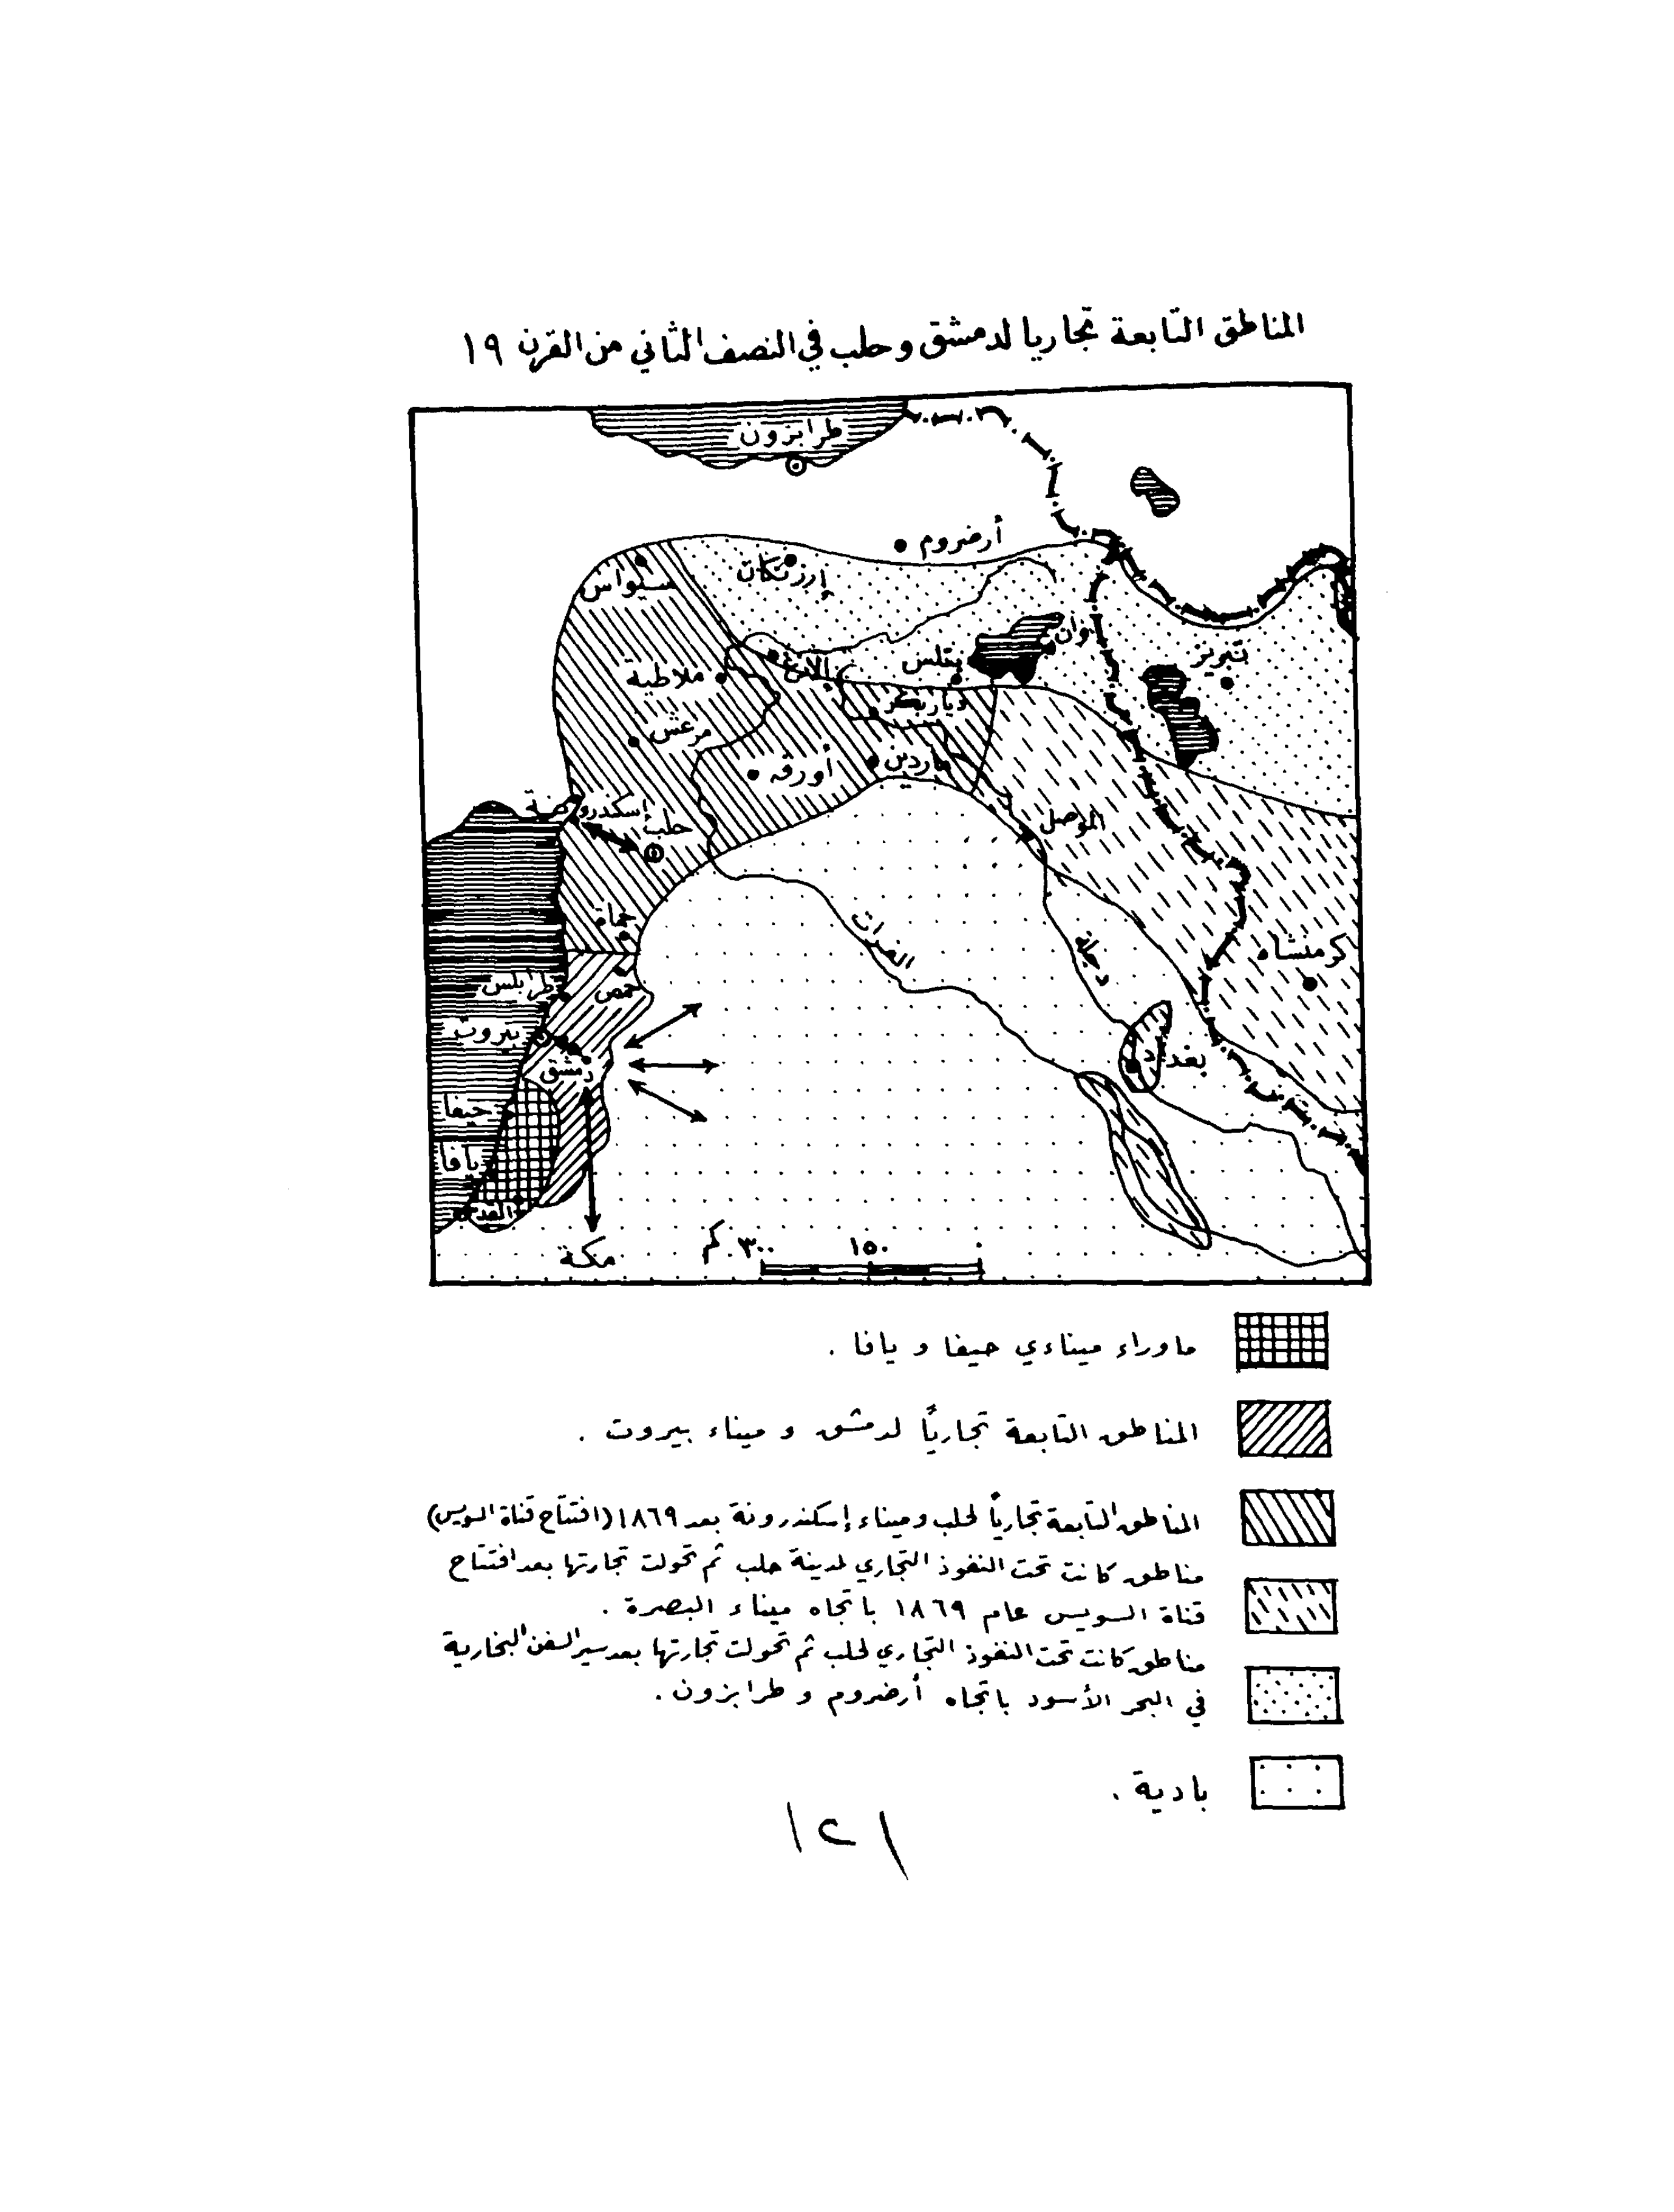 المناطق التابعة تجاريا لدمشق وحلب في النصف الثاني من القرن ١٩
طرابزون
أرضروم
إرزنكان
سيواس
وان
بتلس
تبريز
ملاطية
ديار بكر
مرعش
ماردين
أورفه
إسكندرونة
حلب
الموصل
حماة
الفرات
دجلة
كرمنشاه
طرابلس
حمص
بيروت
دمشق
بغداد
حيفا
يافا
القدس
مكة
٣٠٠ كم
١٥٠
٠
ما وراء ميناءي حيفا و يافا .
المناطق التابعة تجارياً لدمشق و ميناء بيروت .
المناطق التابعة تجارياً لحلب وميناء إسكندرونة بعد ١٨٦٩ (افتتاح قناة السويس)
مناطق كانت تحت النفوذ التجاري لمدينة حلب ثم تحولت تجارتها بعد افتتاح
قناة السويس عام ١٨٦٩ باتجاه ميناء البصرة .
مناطق كانت تحت النفوذ التجاري لحلب ثم تحولت تجارتها بعد سير السفن البخارية
في البحر الأسود باتجاه أرضروم و طرابزون .
بادية .
١٢١